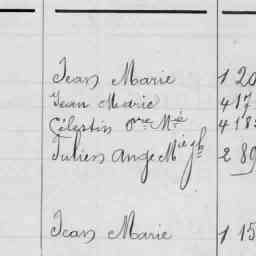 Jean Marie 1 20
Jean Marie 4 17
Célestin Pre Mie 4 18
Julien Ange Mie Jh 2 89
Jean Marie 1 15